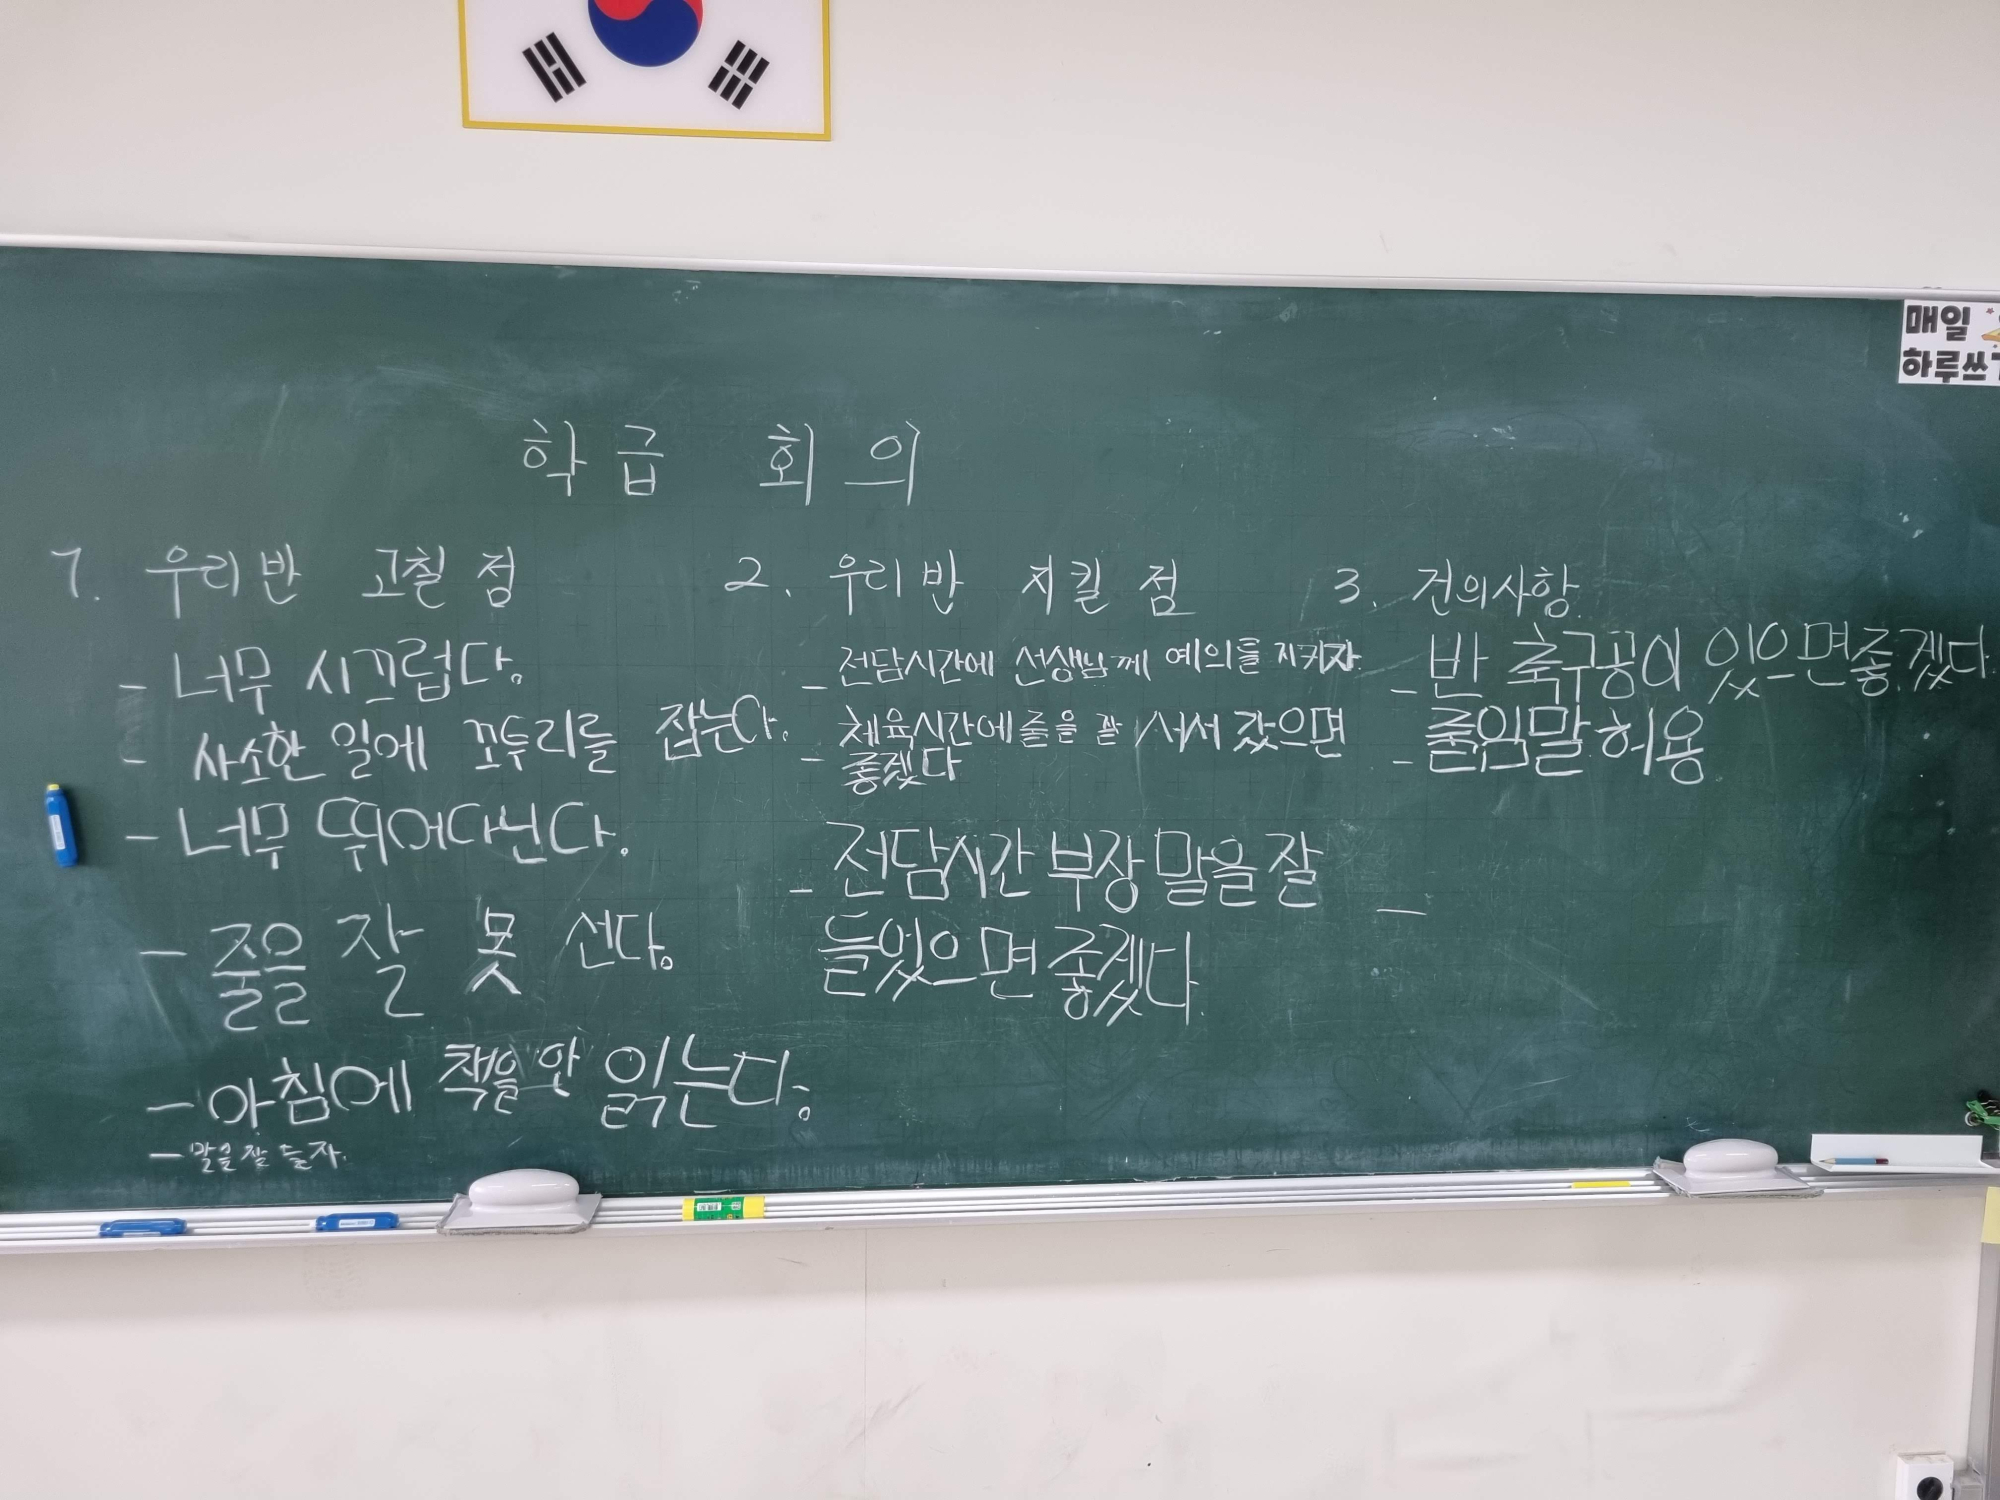 매일
하루쓰
학급 회의
1. 우리반 고칠 점
- 너무 시끄럽다.
- 사소한 일에 꼬투리를 잡는다.
- 너무 뛰어다닌다.
- 줄을 잘 못 선다.
- 아침에 책을 안 읽는다.
- 말을 잘 듣자.
2. 우리반 지킬 점
- 전담시간에 선생님께 예의를 지키자.
- 체육시간에 줄을 잘 서서 갔으면
좋겠다
- 전담시간 부장 말을 잘
들었으면 좋겠다.
3. 건의사항.
- 반 축구공이 있으면 좋겠다.
- 줄임말 허용
-